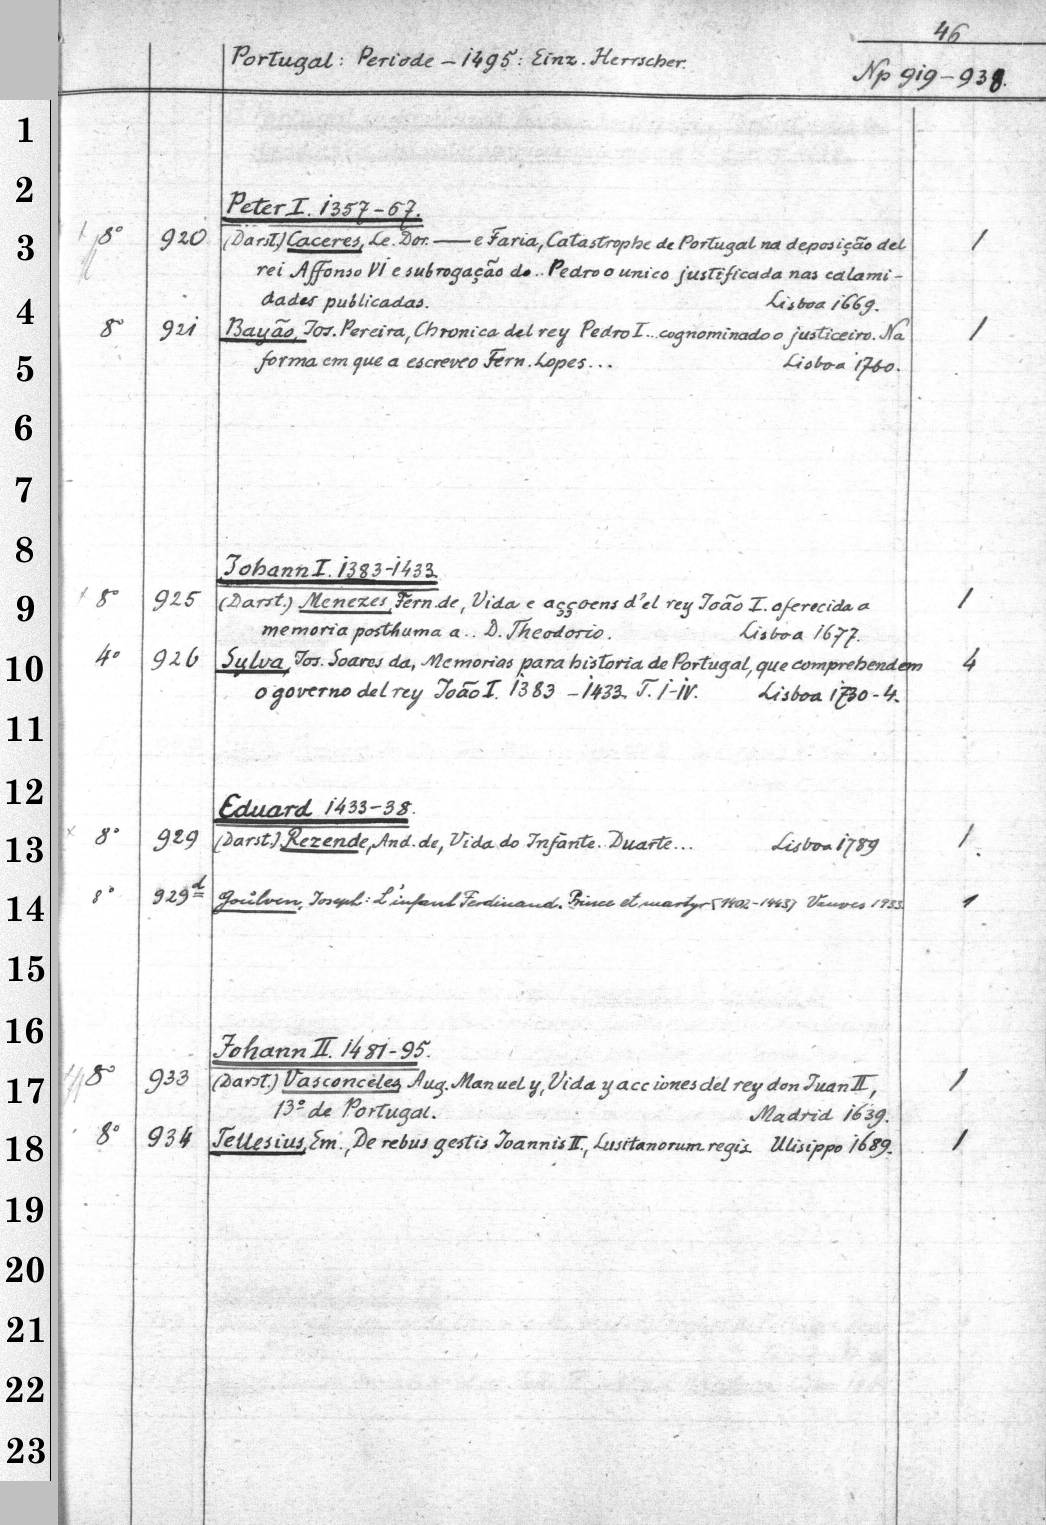 46
Portugal: Periode - 1495: Einz. Herrscher.
Np 919-938.
1
2
Peter I. 1357-67.
3 8° 920 (Darst.) Caceres, Le. Dor. — e Faria, Catastrophe de Portugal na deposição del 1
rei Affonso VI e subrogação do.. Pedro o unico justificada nas calami-
4 dades publicadas. Lisboa 1669.
8° 921 Bayão, Jos. Pereira, Chronica del rey Pedro I... cognominado o justiceiro. Na 1
5 forma em que a escreveo Fern. Lopes... Lisboa 1760.
6
7
8
Johann I. 1383-1433
9 8° 925 (Darst.) Menezes, Fern. de, Vida e acçoens d'el rey João I. oferecida a 1
memoria posthuma a.. D. Theodosio. Lisboa 1677.
10 4° 926 Sylva, Jos. Soares da, Memorias para historia de Portugal, que comprehendem 4
o governo del rey João I. 1383 - 1433. T. I-IV. Lisboa 1730-4.
11
12 Eduard 1433-38.
13 8° 929 (Darst.) Rezende, And. de, Vida do Infante. Duarte... Lisboa 1789 1.
14 8° 929d Goulven, Joseph: L'infant Ferdinand. Prince et martyr (1402-1443) Vanves 1933. 1
15
16
Johann II. 1481-95.
17 8° 933 (Darst.) Vasconceles, Aug. Manuel y, Vida y acciones del rey don Juan II, 1
13° de Portugal. Madrid 1639.
18 8° 934 Tellesius, Em., De rebus gestis Joannis II., Lusitanorum regis. Ulisippo 1689. 1
19
20
21
22
23